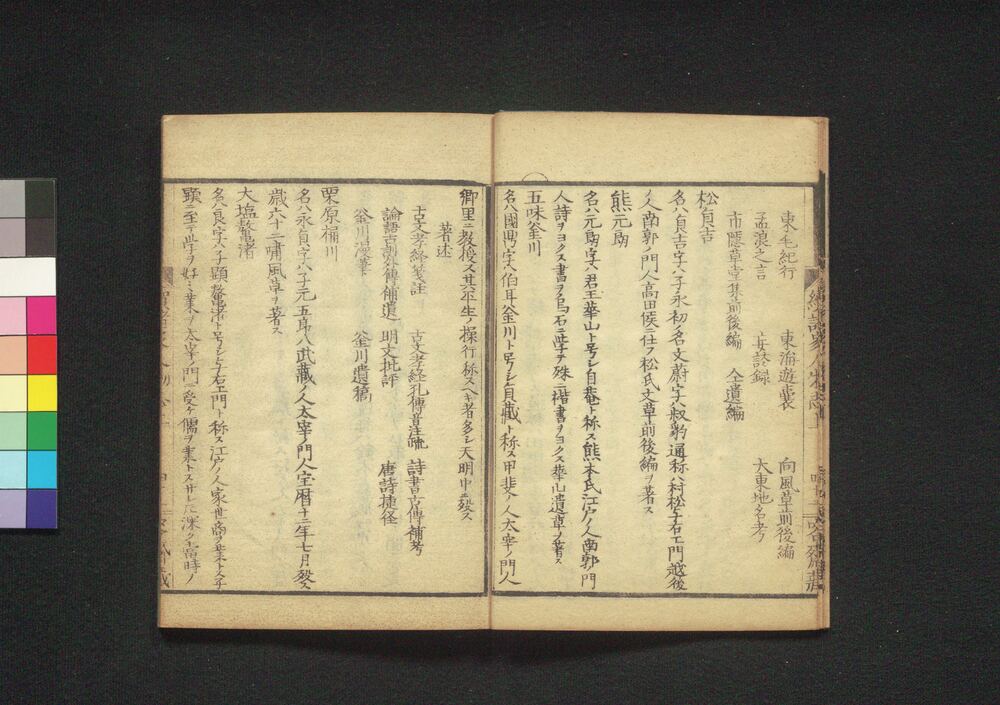 東毛紀行 東海遊嚢 向風草前後編
孟浪之言 大東地名考
市隱草堂集前後編 仝遺編
松貞吉
名ハ貞吉字ハ子永初名文蔚字ハ叔豹通称ハ村松子右エ門越後
ノ人南郭ノ門人高田侯ニ仕フ松氏文草前後編ヲ著ス
熊元朗
名ハ元朗字ハ君玉華山ト号シ自菴ト称ス熊本氏江戸ノ人南郭門
人詩ヲヨクス書ヲ烏石ニ学ヲ殊ニ楷書ヲヨクス華山遺草ノ著ス
五味釜川
名ハ國鼎字ハ伯耳釜川ト号シ貞藏ト称ス甲斐ノ人太宰ノ門人
郷里ニ教授ス其平生ノ操行称スヘキ者多シ天明中ニ歿ス
著述
古文孝経箋註 古文孝経孔傳音注疏 詩書古傳補考
論語古訓外傳補遺 明文批評 唐詩捷径
釜川漫筆 釜川遺稿
栗原桶川
名ハ永貞字ハ子元五郎八武藏ノ人太宰ノ門人宝暦十二年七月歿ス
歳六十二嘯風草ヲ著ス
大塩鰲渚
名ハ良字ハ子顕鰲渚ト号シ与右エ門ト称ス江戸ノ人家世商ヲ業トス子
顕ニ至テ学ヲ好ミ業ヲ太宰ノ門ニ受ケ儒ヲ業トスサレ𪜈深ク當時ノ